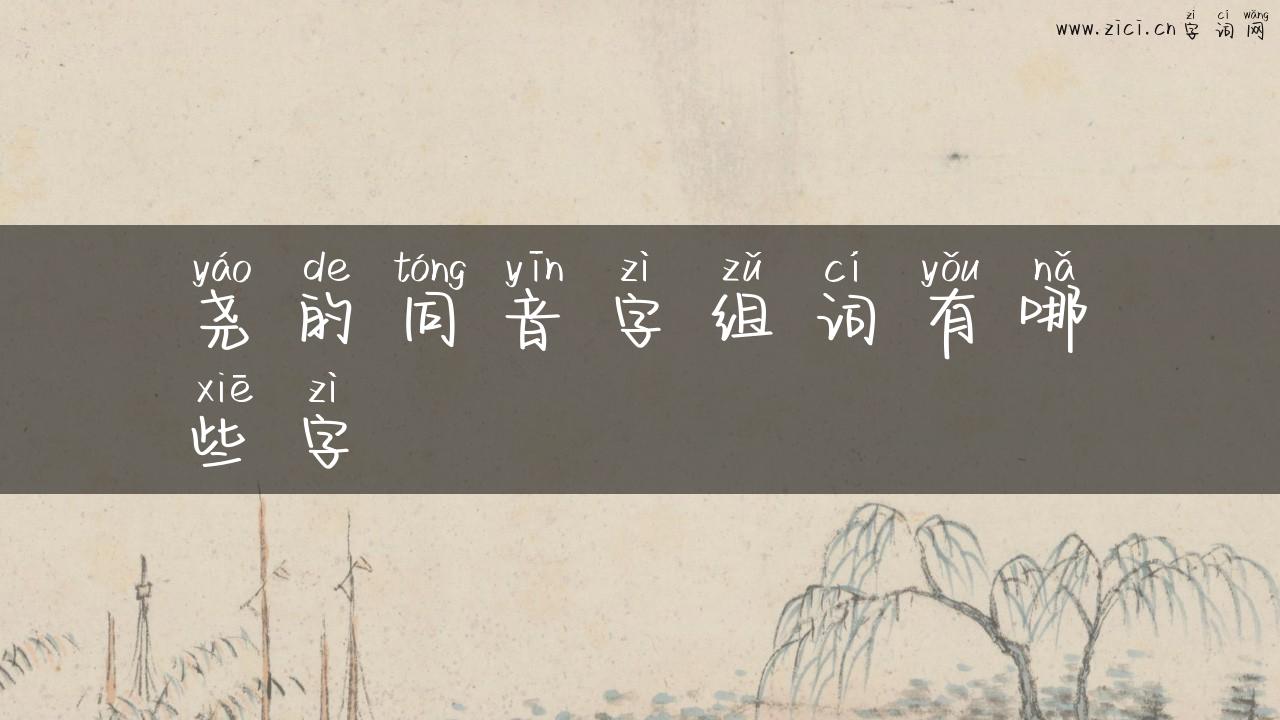 zì cí wǎng
www.zici.cn字词网
yáo de tóng yīn zì zǔ cí yǒu nǎ
尧的同音字组词有哪
xiē zì
些字